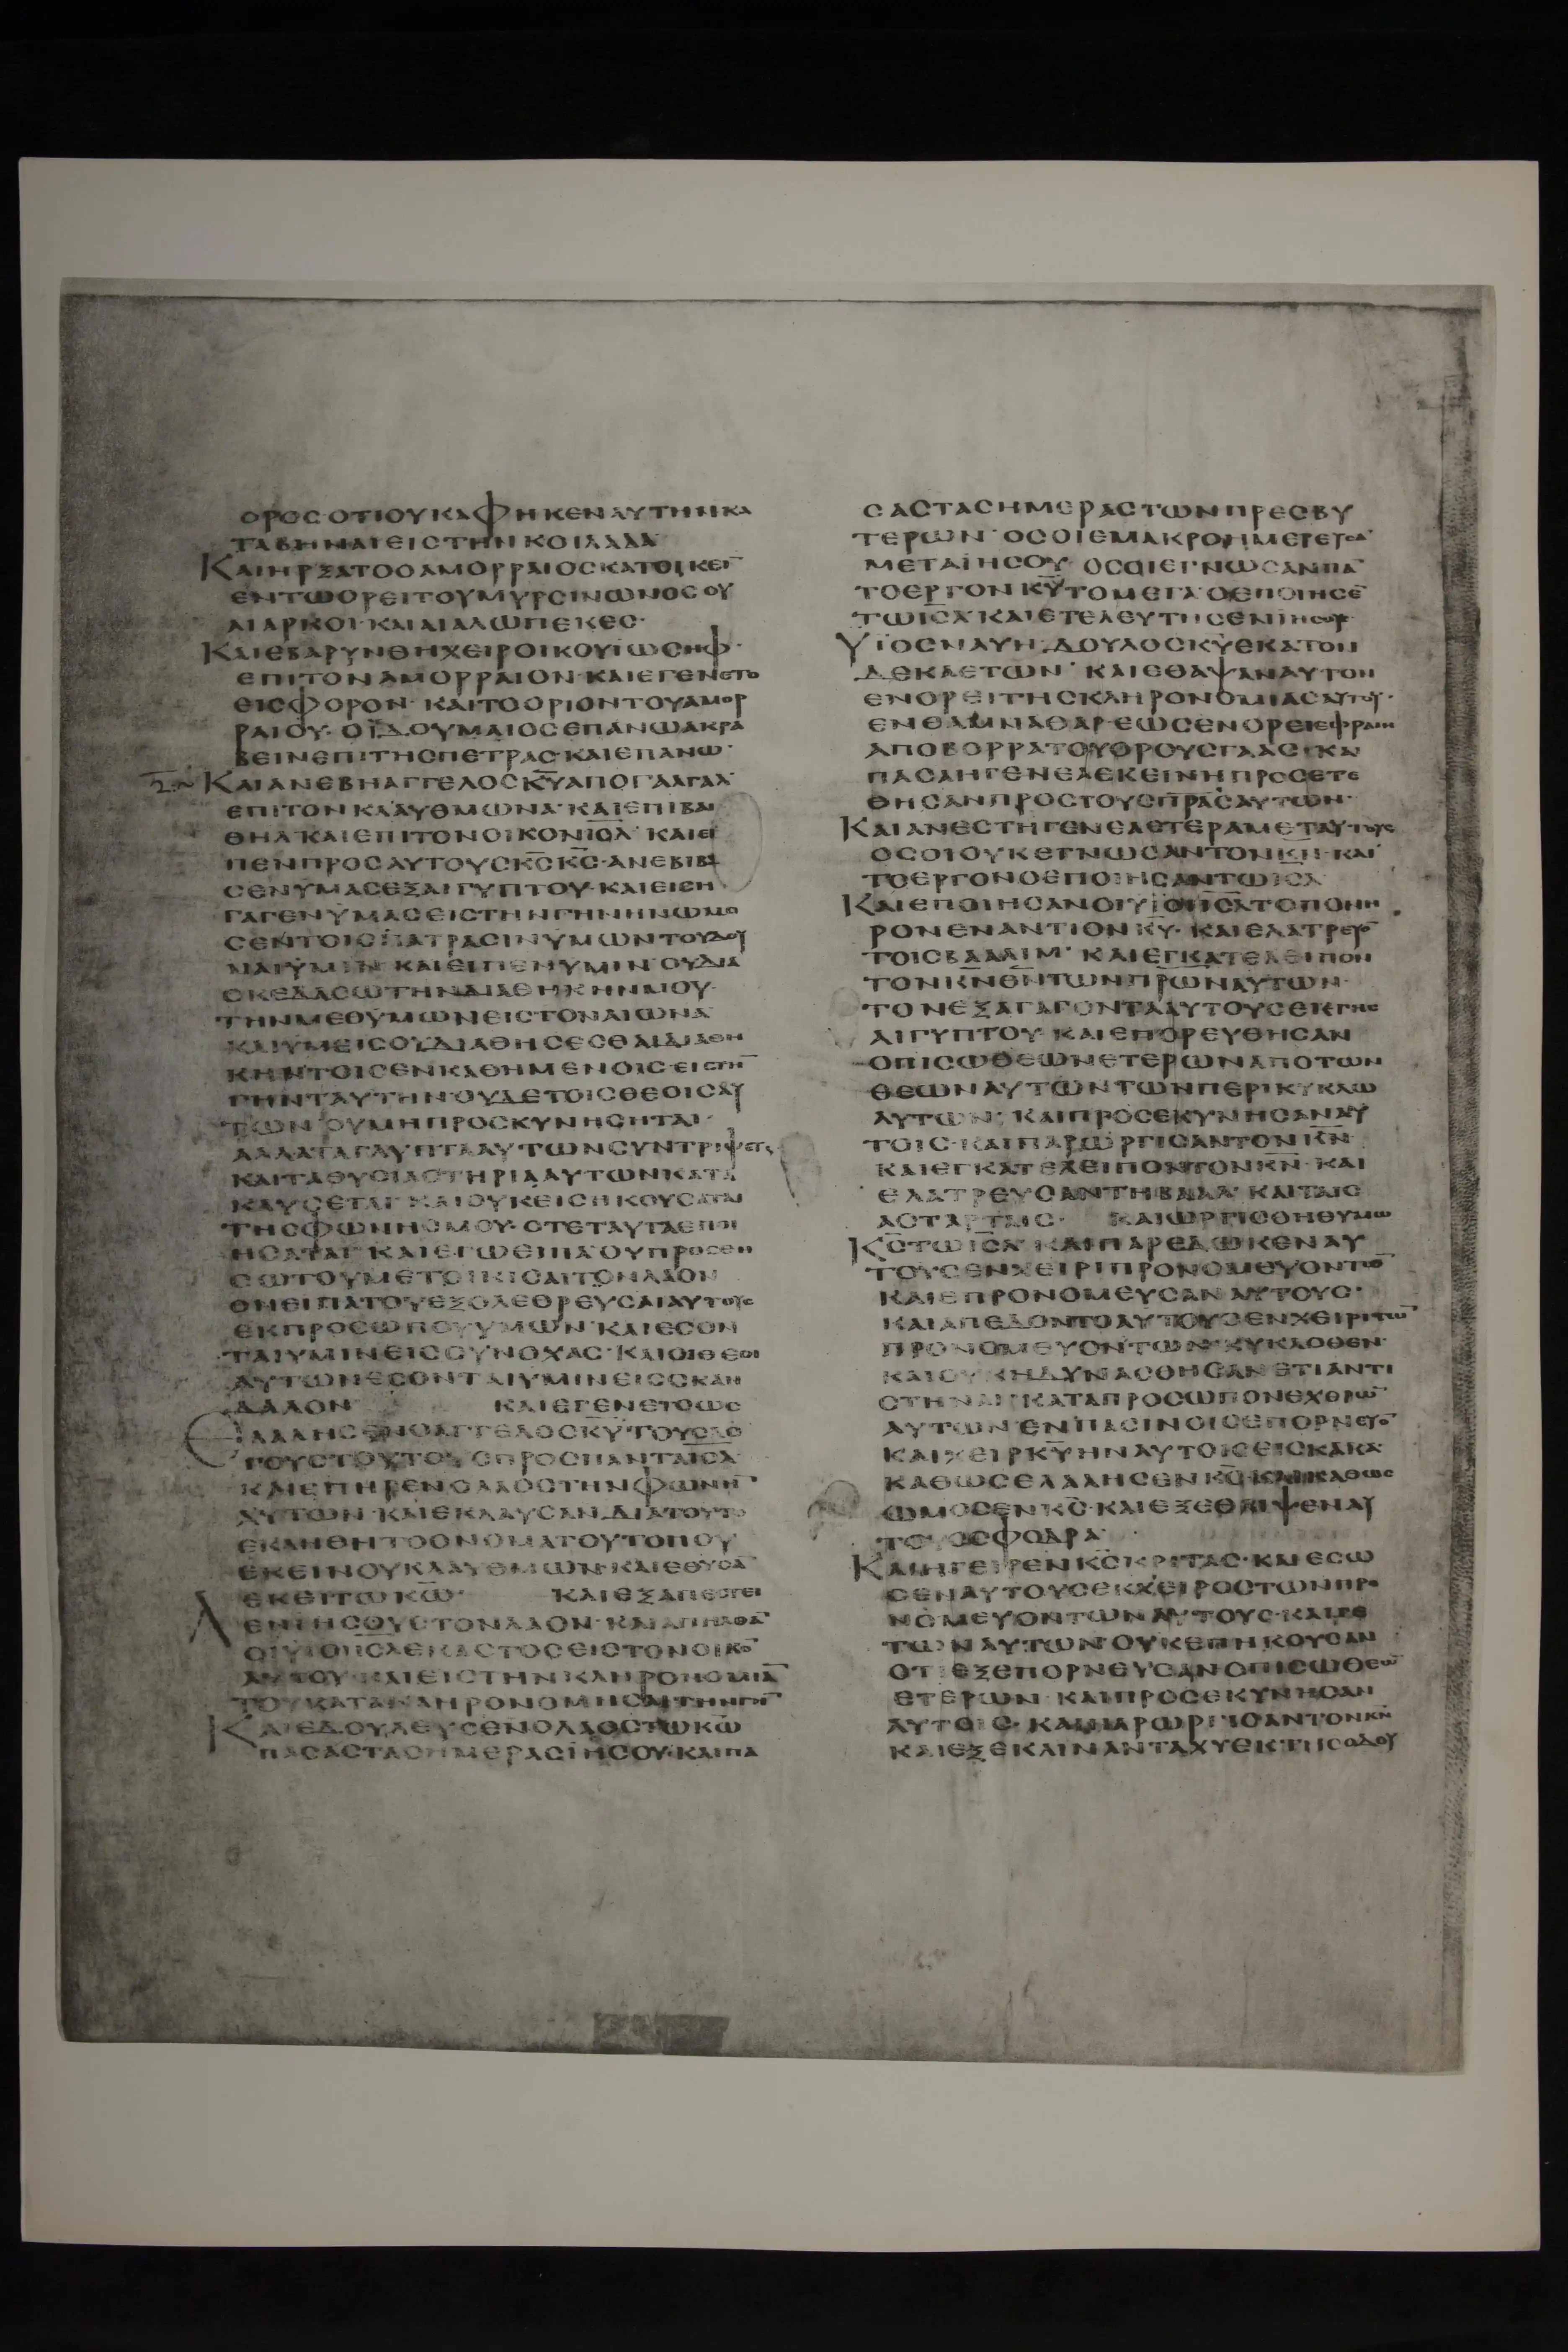 ΟΡΟΣ·ΟΤΙΟΥΚΑΦΗΚΕΝΑΥΤΗΝΚΑ
ΤΑΒΗΝΑΙΕΙΣΤΗΝΚΟΙΛΑΔΑ
ΚΑΙΗΡΞΑΤΟΟΑΜΟΡΡΑΙΟΣΚΑΤΟΙΚΕΙ̅
ΕΝΤΩΟΡΕΙΤΟΥΜΥΡΣΙΝΩΝΟΣΟΥ
ΑΙΑΡΚΟΙ·ΚΑΙΑΙΑΛΩΠΕΚΕΣ·
ΚΑΙΕΒΑΡΥΝΘΗΧΕΙΡΟΙΚΟΥΙΩΣΗΦ·
ΕΠΙΤΟΝΑΜΟΡΡΑΙΟΝ·ΚΑΙΕΓΕΝΕΤΟ
ΕΙΣΦΟΡΟΝ·ΚΑΙΤΟΟΡΙΟΝΤΟΥΑΜΟΡ
ΡΑΙΟΥ·ΟΪΔΟΥΜΑΙΟΣΕΠΑΝΩΑΚΡΑ
ΒΕΙΝΕΠΙΤΗΣΠΕΤΡΑΣ·ΚΑΙΕΠΑΝΩ·
ΚΑΙΑΝΕΒΗΑΓΓΕΛΟΣΚ̅Υ̅ΑΠΟΓΑΛΓΑΛ
ΕΠΙΤΟΝΚΛΑΥΘΜΩΝΑ·ΚΑΙΕΠΙΒΑΙ
ΘΗΛ·ΚΑΙΕΠΙΤΟΝΟΙΚΟΝΙ̅Η̅Λ̅·ΚΑΙΕΙ
ΠΕΝΠΡΟΣΑΥΤΟΥΣΚ̅Σ̅Κ̅Σ̅·ΑΝΕΒΙΒΑ
ΣΕΝΥΜΑΣΕΞΑΙΓΥΠΤΟΥ·ΚΑΙΕΙΣΗ
ΓΑΓΕΝΫΜΑΣΕΙΣΤΗΝΓΗΝΗΝΩΜΟ
ΣΕΝΤΟΙΣΠΑΤΡΑΣΙΝΥΜΩΝΤΟΥΔΟΥ
ΝΑΙΫΜΙΝ·ΚΑΙΕΙΠΕΝΥΜΙΝ·ΟΥΔΙΑ
ΣΚΕΔΑΣΩΤΗΝΔΙΑΘΗΚΗΝΜΟΥ·
ΤΗΝΜΕΘΥΜΩΝΕΙΣΤΟΝΑΙΩΝΑ
ΚΑΙΥΜΕΙΣΟΥΔΙΑΘΗΣΕΣΘΑΙΔΙΑΘΗ
ΚΗΝΤΟΙΣΕΝΚΑΘΗΜΕΝΟΙΣ·ΕΙΣΤΗ̅
ΓΗΝΤΑΥΤΗΝ·ΟΥΔΕΤΟΙΣΘΕΟΙΣΑΥ
ΤΩΝΟΥΜΗΠΡΟΣΚΥΝΗΣΗΤΑΙ·
ΑΛΛΑΤΑΓΛΥΠΤΑΑΥΤΩΝΣΥΝΤΡΙΨΕΤΕ
ΚΑΙΤΑΘΥΣΙΑΣΤΗΡΙΑΑΥΤΩΝΚΑΤΑ
ΚΑΥΣΕΤΑΙ·ΚΑΙΟΥΚΕΙΣΗΚΟΥΣΑΤΑΙ
ΤΗΣΦΩΝΗΣΜΟΥ·ΟΤΕΤΑΥΤΑΕΠΟΙ
ΗΣΑΤΑΙ·ΚΑΙΕΓΩΕΙΠΑΟΥΠΡΟΣΘΗ
ΣΩΤΟΥΜΕΤΟΙΚΙΣΑΙΤΟΝΛΑΟΝ
ΟΝΕΙΠΑΤΟΥΕΞΟΛΕΘΡΕΥΣΑΙΑΥΤΟΥΣ
ΕΚΠΡΟΣΩΠΟΥΥΜΩΝ·ΚΑΙΕΣΟΝ
ΤΑΙΥΜΙΝΕΙΣΣΥΝΟΧΑΣ·ΚΑΙΟΙΘΕΟΙ
ΑΥΤΩΝΕΣΟΝΤΑΙΥΜΙΝΕΙΣΣΚΑΝ
ΔΑΛΟΝ ΚΑΙΕΓΕΝΕΤΟΩΣ
ΕΛΑΛΗΣΕΝΟΑΓΓΕΛΟΣΚ̅Υ̅ΤΟΥΣΛΟ
ΓΟΥΣΤΟΥΤΟΥΣΠΡΟΣΠΑΝΤΑΙ̅Σ̅Λ̅
ΚΑΙΕΠΗΡΕΝΟΛΑΟΣΤΗΝΦΩΝΗ̅
ΑΥΤΩΝ·ΚΑΙΕΚΛΑΥΣΑΝ·ΔΙΑΤΟΥΤΟ
ΕΚΛΗΘΗΤΟΟΝΟΜΑΤΟΥΤΟΠΟΥ
ΕΚΕΙΝΟΥΚΛΑΥΘΜΩΝ·ΚΑΙΕΘΥΣΑ̅
ΕΚΕΙΤΩΚ̅Ω̅· ΚΑΙΕΞΑΠΕΣΤΕΙ
ΛΕΝΙΗΣΟΥΣΤΟΝΛΑΟΝ·ΚΑΙΑΠΗΛΘΑ̅
ΟΙΥΙΟΙΙ̅Σ̅Λ̅ΕΚΑΣΤΟΣΕΙΣΤΟΝΟΙΚΟ̅
ΑΥΤΟΥ·ΚΑΙΕΙΣΤΗΝΚΛΗΡΟΝΟΜΙΑ̅
ΤΟΥΚΑΤΑΚΛΗΡΟΝΟΜΗΣΑΙΤΗΝΓΗ̅
ΚΑΙΕΔΟΥΛΕΥΣΕΝΟΛΑΟΣΤΩΚ̅Ω̅
ΠΑΣΑΣΤΑΣΗΜΕΡΑΣΙΗΣΟΥ·ΚΑΙΠΑ
ΣΑΣΤΑΣΗΜΕΡΑΣΤΩΝΠΡΕΣΒΥ
ΤΕΡΩΝ·ΟΣΟΙΕΜΑΚΡΟΗΜΕΡΕΥΣΑ̅
ΜΕΤΑΪΗΣΟΥ·ΟΣΟΙΕΓΝΩΣΑΝΠΑ̅
ΤΟΕΡΓΟΝΚ̅Υ̅ΤΟΜΕΓΑ·ΟΕΠΟΙΗΣΕ̅
ΤΩΙ̅Σ̅Λ̅ΚΑΙΕΤΕΛΕΥΤΗΣΕΝΙΗΣΟΥΣ
ΥΪΟΣΝΑΥΗ·ΔΟΥΛΟΣΚ̅Υ̅ΕΚΑΤΟΝ
ΔΕΚΑΕΤΩΝ·ΚΑΙΕΘΑΨΑΝΑΥΤΟΝ
ΕΝΟΡΕΙΤΗΣΚΛΗΡΟΝΟΜΙΑΣΑΥΤΟΥ·
ΕΝΘΑΜΝΑΘΑΡ·ΕΩΣΕΝΟΡΕΙΕΦΡΑΙΜ
ΑΠΟΒΟΡΡΑΤΟΥΟΡΟΥΣΓΑΑΣ·ΚΑΙ
ΠΑΣΑΗΓΕΝΕΑΕΚΕΙΝΗΠΡΟΣΕΤΕ
ΘΗΣΑΝΠΡΟΣΤΟΥΣΠ̅Ρ̅Α̅Σ̅ΑΥΤΩΝ·
ΚΑΙΑΝΕΣΤΗΓΕΝΕΑΕΤΕΡΑΜΕΤΑΥΤΟΥΣ
ΟΣΟΙΟΥΚΕΓΝΩΣΑΝΤΟΝΚ̅Ν̅·ΚΑΙ
ΤΟΕΡΓΟΝΟΕΠΟΙΗΣΑΝΤΩΙ̅Σ̅Λ̅
ΚΑΙΕΠΟΙΗΣΑΝΟΙΥΙΟΙΙ̅Σ̅Λ̅ΤΟΠΟΝΗ
ΡΟΝΕΝΑΝΤΙΟΝΚ̅Υ̅·ΚΑΙΕΛΑΤΡΕΥΟ̅
ΤΟΙΣΒΑΑΛΙΜ·ΚΑΙΕΓΚΑΤΕΛΕΙΠΟΝ
ΤΟΝΚ̅Ν̅Θ̅Ν̅ΤΩΝΠ̅Ρ̅Ω̅Ν̅ΑΥΤΩΝ·
ΤΟΝΕΞΑΓΑΓΟΝΤΑΑΥΤΟΥΣΕΚΓΗΣ
ΑΙΓΥΠΤΟΥ·ΚΑΙΕΠΟΡΕΥΘΗΣΑΝ
ΟΠΙΣΩΘΕΩΝΕΤΕΡΩΝΑΠΟΤΩΝ
ΘΕΩΝΑΥΤΩΝΤΩΝΠΕΡΙΚΥΚΛΩ
ΑΥΤΩΝ·ΚΑΙΠΡΟΣΕΚΥΝΗΣΑΝΑΥ
ΤΟΙΣ·ΚΑΙΠΑΡΩΡΓΙΣΑΝΤΟΝΚ̅Ν̅·
ΚΑΙΕΓΚΑΤΕΛΕΙΠΟΝΤΟΝΚ̅Ν̅·ΚΑΙ
ΕΛΑΤΡΕΥΣΑΝΤΗΒΑΑΛ·ΚΑΙΤΑΙΣ
ΑΣΤΑΡΤΑΙΣ· ΚΑΙΩΡΓΙΣΘΗΘΥΜΩ
Κ̅Σ̅ΤΩΙ̅Σ̅Λ̅·ΚΑΙΠΑΡΕΔΩΚΕΝΑΥ
ΤΟΥΣΕΝΧΕΙΡΙΠΡΟΝΟΜΕΥΟΝΤΩ̅
ΚΑΙΕΠΡΟΝΟΜΕΥΣΑΝΑΥΤΟΥΣ·
ΚΑΙΑΠΕΔΟΝΤΟΑΥΤΟΥΣΕΝΧΕΙΡΙΤΩ̅
ΠΡΟΝΟΜΕΥΟΝΤΩΝ·ΚΥΚΛΟΘΕΝ·
ΚΑΙΟΥΚΗΔΥΝΑΣΘΗΣΑΝΕΤΙΑΝΤΙ
ΣΤΗΝΑΙ·ΚΑΤΑΠΡΟΣΩΠΟΝΕΧΘΡΩ̅
ΑΥΤΩΝΕΝΠΑΣΙΝΟΙΣΕΠΟΡΝΕΥΟ̅
ΚΑΙΧΕΙΡΚ̅Υ̅ΗΝΑΥΤΟΙΣΕΙΣΚΑΚΑ·
ΚΑΘΩΣΕΛΑΛΗΣΕΝΚ̅Σ̅·ΚΑΙΚΑΘΩΣ
ΩΜΟΣΕΝΚ̅Σ̅·ΚΑΙΕΞΕΘΛΙΨΕΝΑΥ
ΤΟΥΣΣΦΟΔΡΑ·
ΚΑΙΗΓΕΙΡΕΝΚ̅Σ̅ΚΡΙΤΑΣ·ΚΑΙΕΣΩ
ΣΕΝΑΥΤΟΥΣΕΚΧΕΙΡΟΣΤΩΝΠΡΟ
ΝΟΜΕΥΟΝΤΩΝΑΥΤΟΥΣ·ΚΑΙΓΕ
ΤΩΝΑΥΤΩΝΟΥΚΕΠΗΚΟΥΣΑΝ
ΟΤΙΕΞΕΠΟΡΝΕΥΣΑΝΟΠΙΣΩΘΕΩ̅
ΕΤΕΡΩΝ·ΚΑΙΠΡΟΣΕΚΥΝΗΣΑΝ
ΑΥΤΟΙΣ·ΚΑΙΠΑΡΩΡΓΙΣΑΝΤΟΝΚ̅Ν̅
ΚΑΙΕΞΕΚΛΙΝΑΝΤΑΧΥΕΚΤΗΣΟΔΟΥ